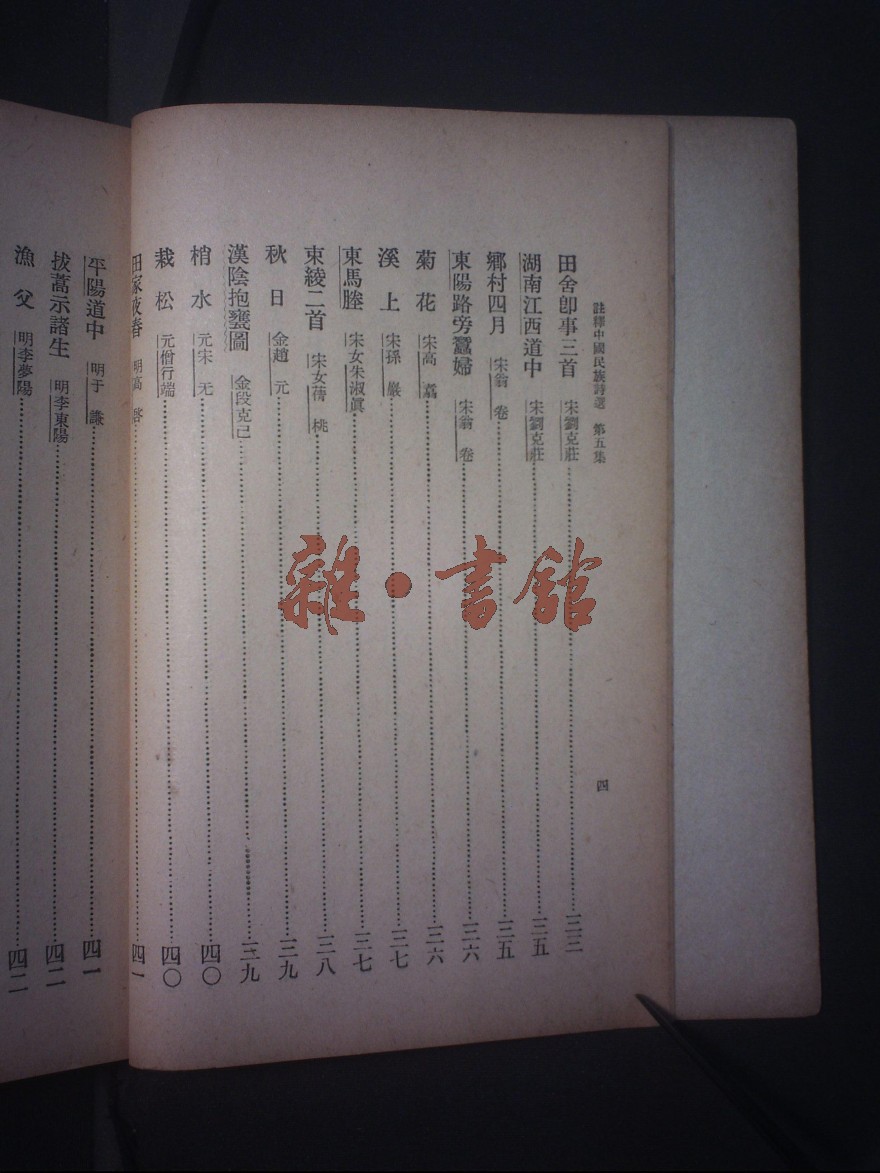 註釋中國民族詩選 第五集
四
田舍卽事三首 宋劉克莊 三三
湖南江西道中 宋劉克莊 三五
鄉村四月 宋翁 卷 三五
東陽路旁蠶婦 宋翁 卷 三六
菊花 宋高 翥 三六
溪上 宋孫 巖 三七
東馬塍 宋女朱淑眞 三七
束綾二首 宋女蒨 桃 三八
秋日 金趙 元 三九
漢陰抱甕圖 金段克己 三九
梢水 元宋 无 四〇
栽松 元僧行端 四〇
田家夜舂 明高 啓 四一
平陽道中 明于 謙 四一
拔蒿示諸生 明李東陽 四二
漁父 明李夢陽 四二
雜·書館